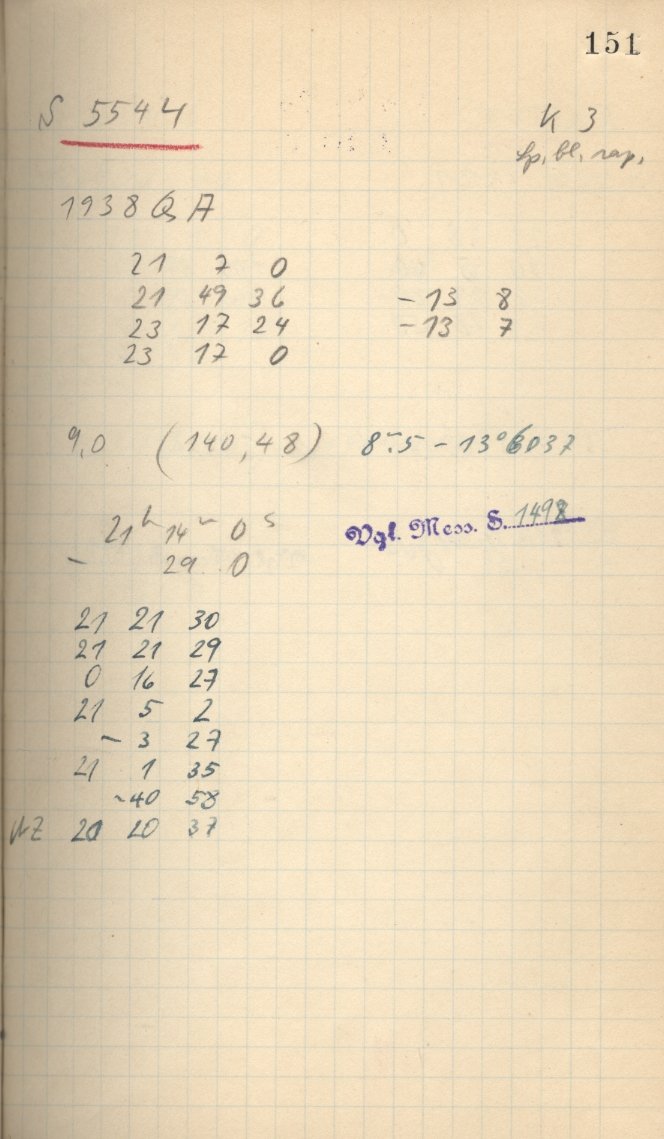 151
S 5544
K 3
Sp, bl, rap,
1938 QA
21 7 0
21 49 36 -13 8
23 17 24 -13 7
23 17 0
9,0 (140,48) 8m.5 -13°6037
21h 14m 0s
Vgl. Mess. S. 1498
- 29 0
21 21 30
21 21 29
0 16 27
21 5 2
- 3 27
21 1 35
-40 58
20 20 37